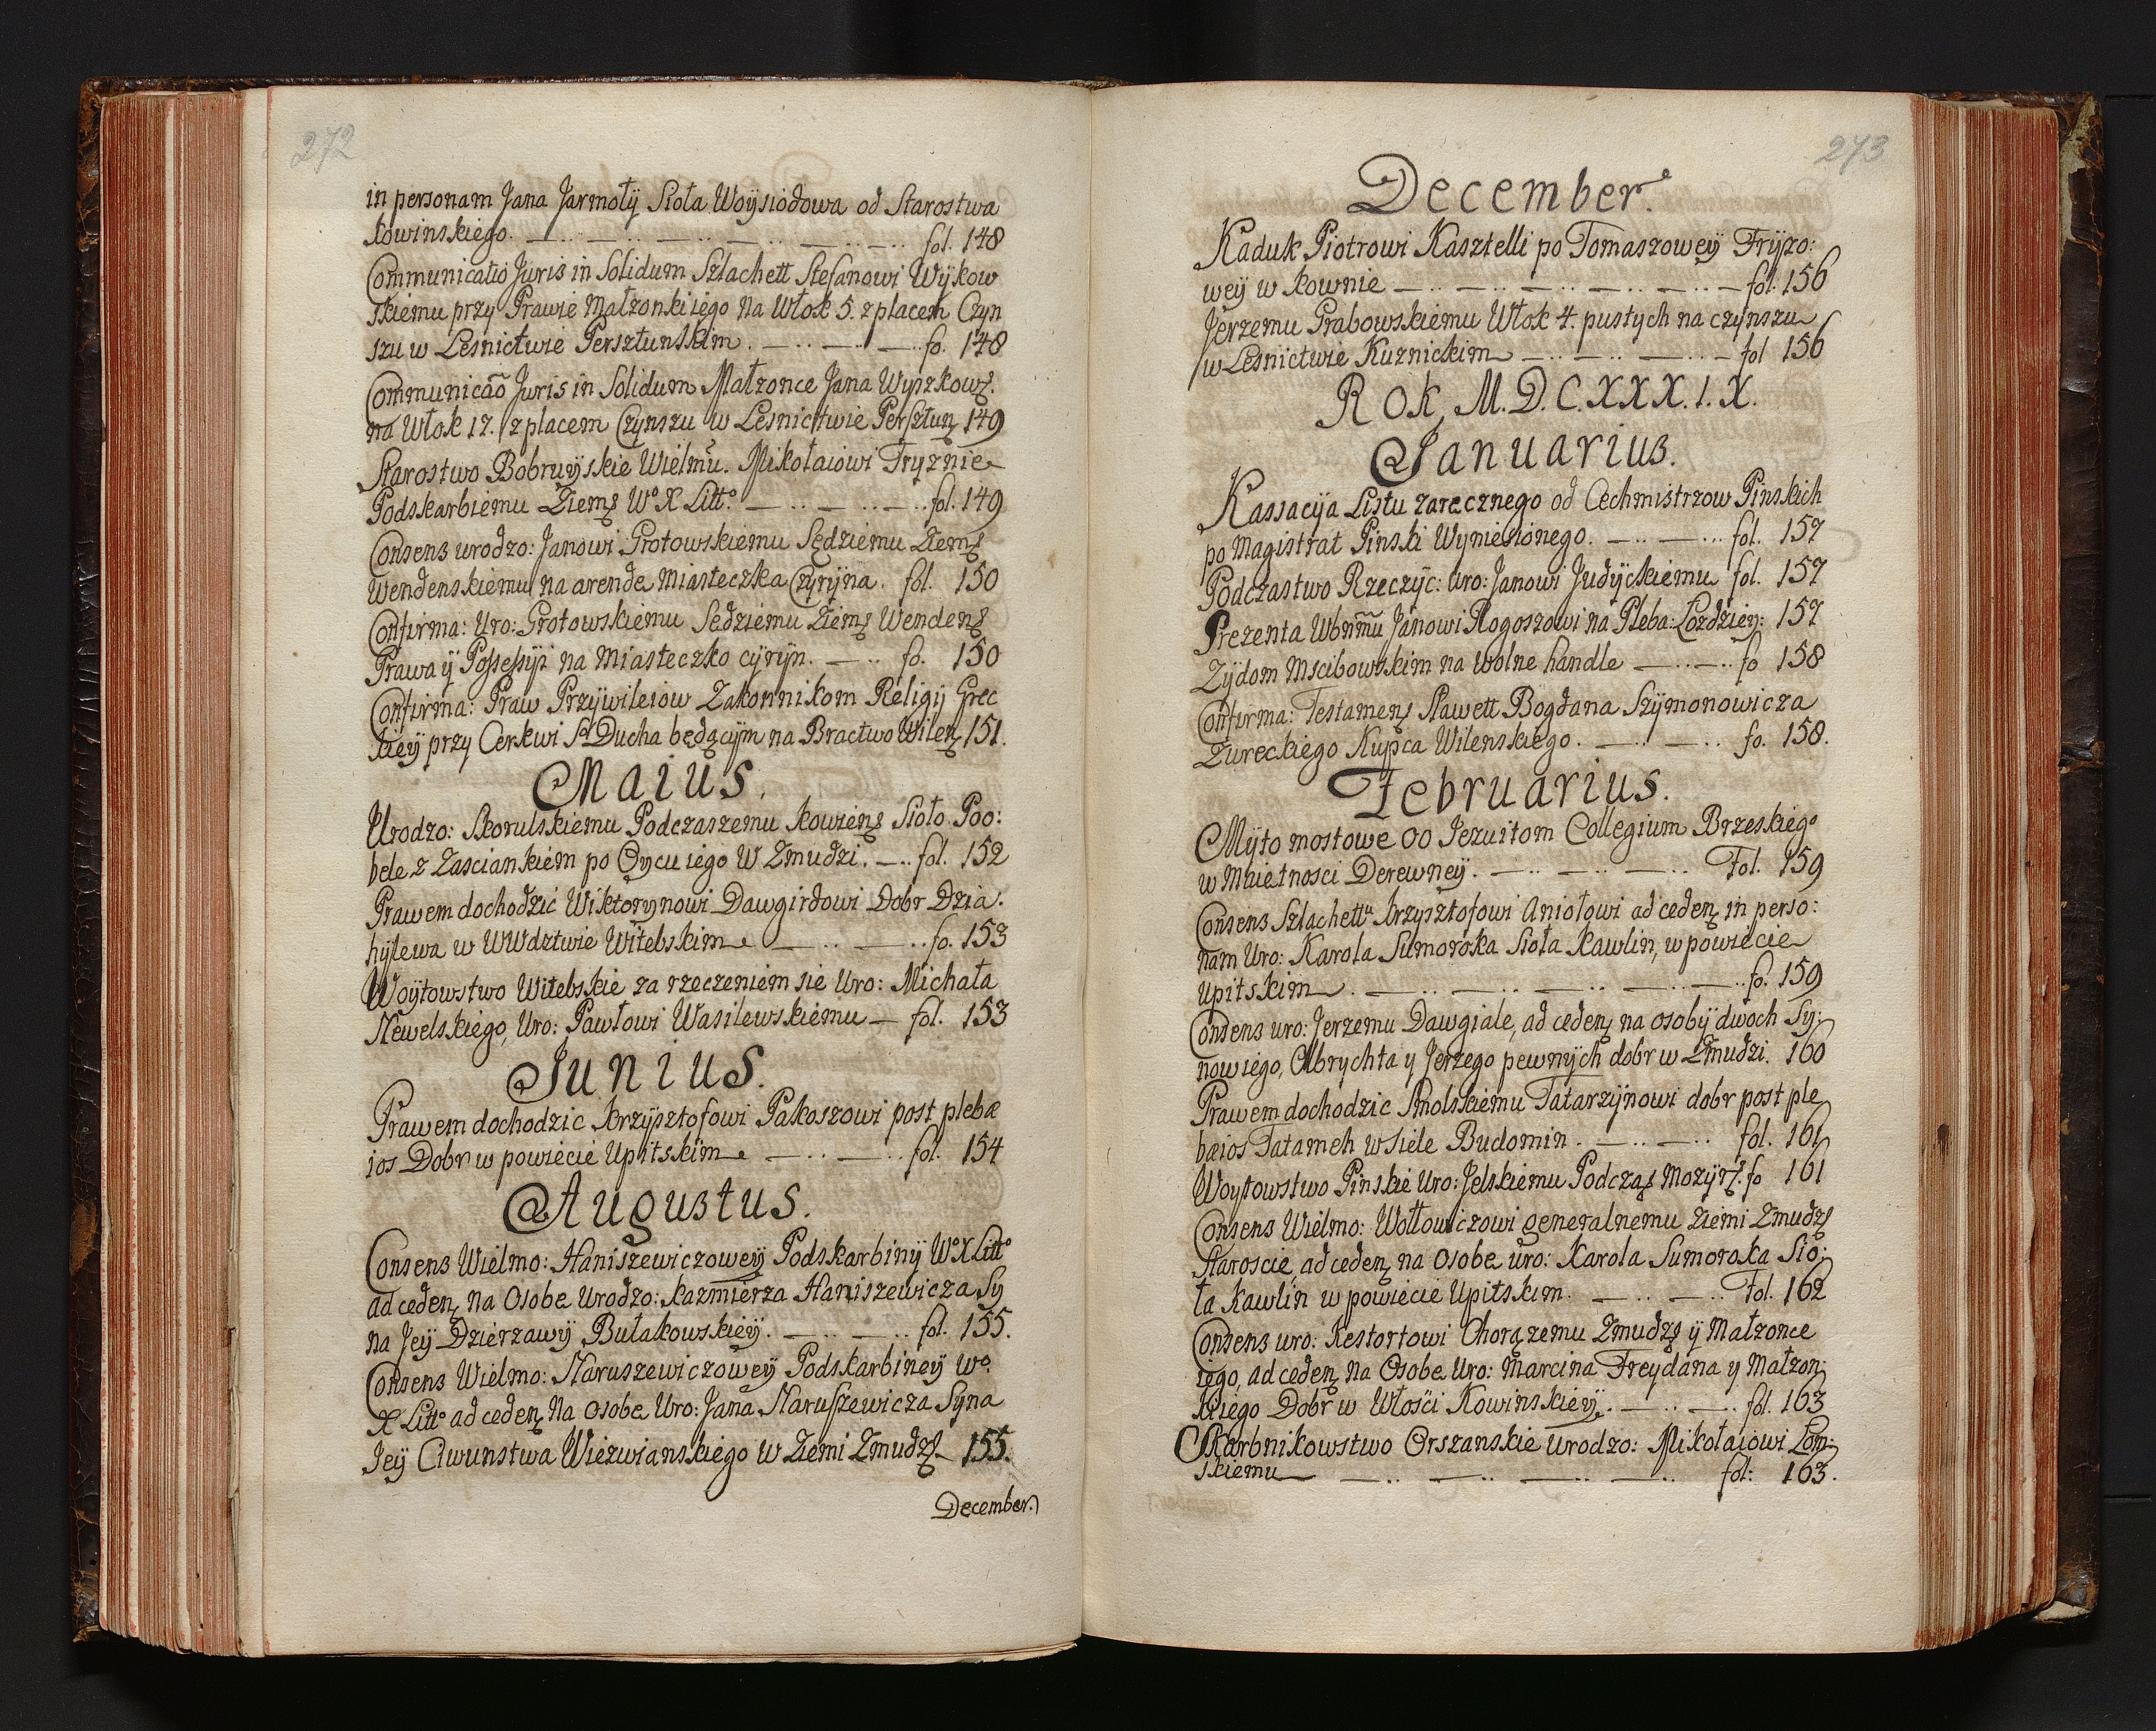 272
in personam Jana Jarmoły Sioła Woysiodowa od Starostwa
kowinskiego. fol. 148
Communicatio Juris in Solidum Szlachett Stefanowi Wykow
skiemu przy Prawie Małzonki iego na Włok 5. z placem Czyn
szu w Lesnictwie Persztunskim. fo. 148
Communicão Juris in Solidum Małzonce Jana Wyszkows.
na Włok 17. z placem Czynszu w Lesnictwie Persztun 149
Starostwo Bobruyskie Wielmu. Mikołaiowi Tryznie
Podskarbiemu Ziems Wº X Littº fol. 149
Consens urodzo: Janowi Grotowskiemu Sędziemu Ziems
Wendenskiemu na arende Miasteczka Cyryna. fol. 150
Confirma: Uro: Grotowskiemu Sędziemu Ziems Wendens
Prawa ÿ Possessyi na Miasteczko cyryn. fo. 150
Confirma: Praw Przywileiow Zakonnikom Religij Grec
kiey przy Cerkwi S. Ducha będącym na Bractwo Wilen 151.
Maius.
Urodzo: Skorulskiemu Podczaszemu kowiens Sioło Poo:
bele z Zasciankiem po Oycu iego w Zmudzi. fol. 152
Prawem dochodzić Wiktorynowi Dawgirdowi Dobr Dzia.
hylewa w WWdztwie Witebskim fo. 153
Woytowstwo Witebskie za rzeczeniem sie Uro: Michała
Newelskiego, Uro: Pawłowi Wasilewskiemu fol. 153
Junius.
Prawem dochodzic krzysztofowi Pakoszowi post plebæ
ios Dobr w powiecie Upitskim fol. 154
Augustus.
Consens Wielmo: Haniszewiczowey Podskarbiny Wº X Littº
ad ceden na Osobe Urodzo: kazmierza Haniszewicza Sy
na Jey Dzierzawy Bułakowskiey. fol. 155.
Consens Wielmo: Naruszewiczowey Podskarbiney Wº.
X Littº ad ceden na osobe Uro: Jana Naruszewicza Syna
Jey Ciwunstwa Wiezwianskiego w Ziemi Zmudz 155.
December.
273
December.
Kaduk Piotrowi Kasztelli po Tomaszowey Fryzo:
wey w kownie fol. 156
Jerzemu Grabowskiemu Włok 4. pustych na czynszu
w Lesnictwie Kuznickim fol 156
ROK, M.D.C.XXX.I.X.
Januarius.
Kassacya Listu zarecznego od Cechmistrzow Pinskich
po Magistrat Pinski Wyniesionego. fol. 157
Podczastwo Rzeczyc: Uro: Janowi Judyckiemu fol. 157
Prezenta Wbnm̃u Janowi Rogoszowi na Pleba: Lozdziey: 157
Zydom Mscibowskim na wolne handle fo 158
Confirma: Testamen Sławett Bogdana Szymonowicza
Zureckiego Kupca Wilenskiego. fo. 158.
Februarius.
Myto mostowe OO Jezuitom Collegium Brzeskiegº
w Maietnosci Derewney. Fol. 159
Consens Szlachett krzysztofowi Aniołowi ad ceden in perso:
nam Uro: Karola Sumoroka Sioła Kawlin, w powiecie
Upitskim fo. 159
Consens uro: Jerzemu Dawgiale, ad ceden na osoby dwoch Sy:
now iego, Olbrychta y Jerzego pewnych dobr w Zmudzi. 160
Prawem dochodzic Smolskiemu Tatarzynowi dobr post ple
bæios Tatameh w siele Budomin. fol. 161
Woytowstwo Pinskie Uro: Jelskiemu Podczas Mozyrs. fo 161
Consens Wielmo: Wołłowiczowi generalnemu ziemi Zmudz
Staroscie, ad ceden na osobe uro: Karola Sumoroka Sio:
ła Kawlin w powiecie Upitskim. Fol. 162
Consens uro: Kestortowi Chorązemu Zmudz ÿ Małzonce
iego, ad ceden na Osobe Uro: Marcina Freydana y Małzon:
ki iego Dobr w Włosci Kowinskiey. fol. 163
Skarbnikowstwo Orszanskie urodzo: Mikołaiowi Lom:
skiemu fol: 163.